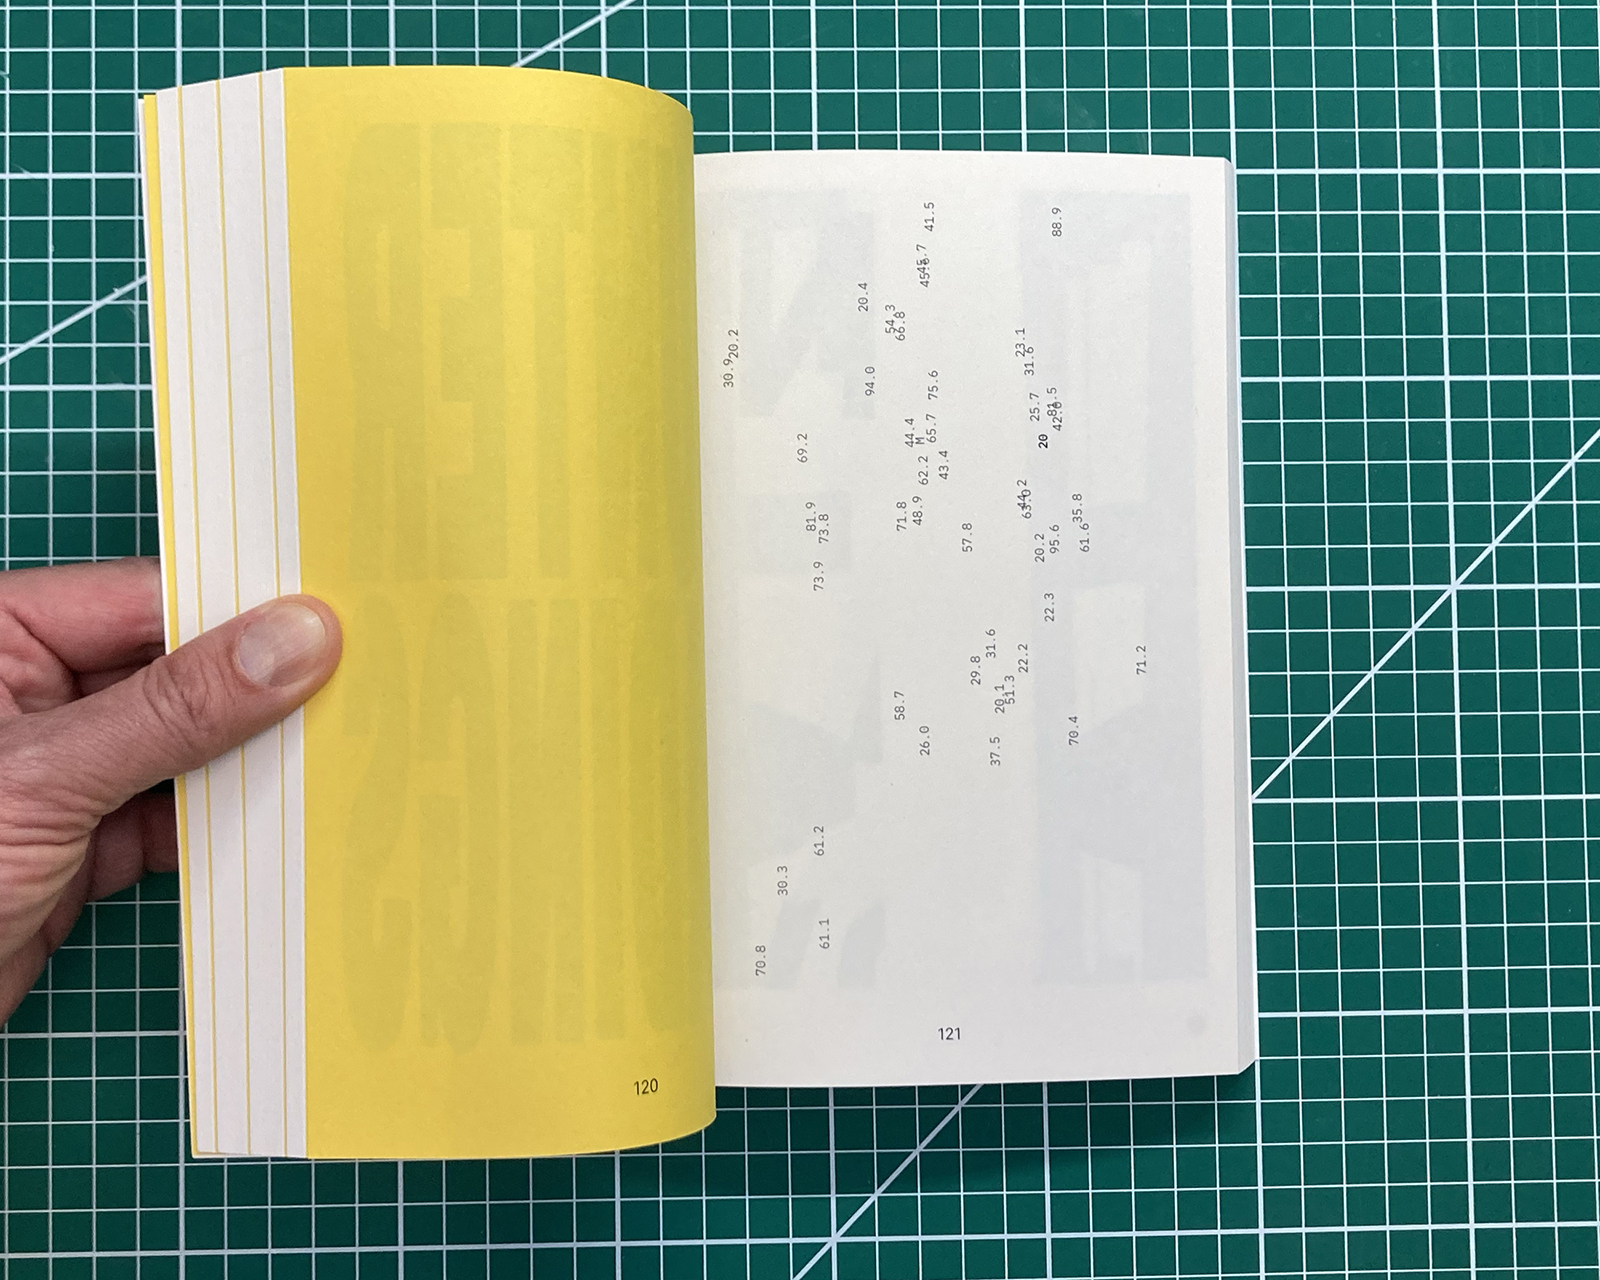 41.5
88.9
45.7
45.6
20.4
54.3
66.8
20.2
30.9
23.1
31.6
94.0
75.6
25.7
81.5
42.6
20
44.4
M
65.7
69.2
62.2
43.4
44.2
63.0
35.8
71.8
48.9
81.9
73.8
57.8
20.2
95.6
61.6
73.9
22.3
31.6
22.2
29.8
71.2
20.1
51.3
58.7
26.0
37.5
70.4
61.2
30.3
61.1
70.8
121
120